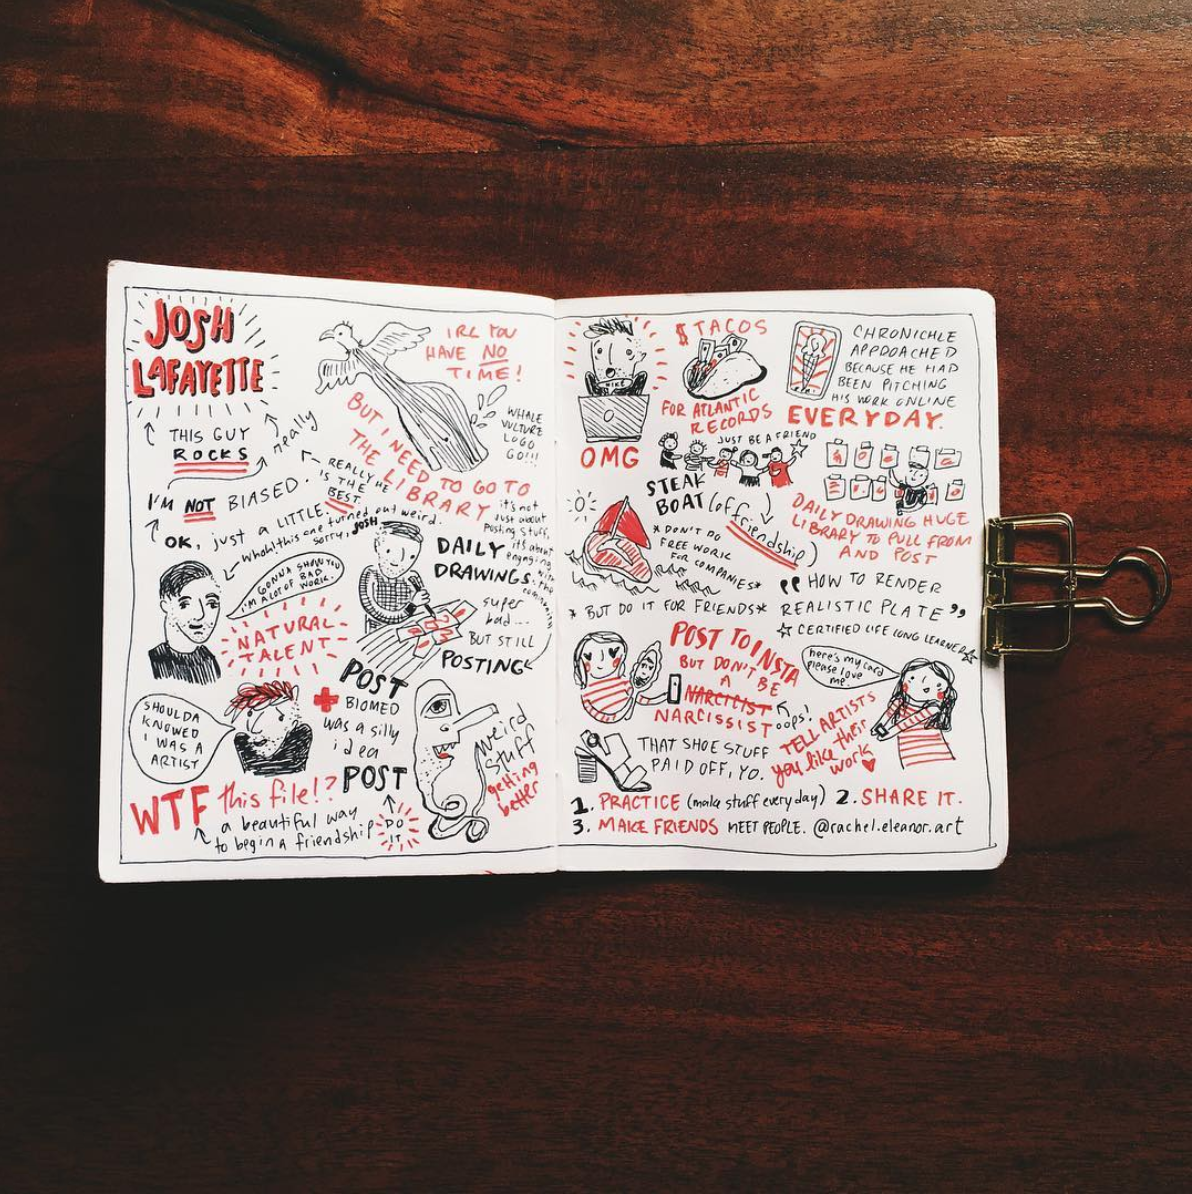 JOSH
LAFAYETTE
THIS GUY
ROCKS
really
I'M NOT BIASED.
OK, just a LITTLE.
REALLY HE
IS THE
BEST.
whoh! this one turned out weird.
sorry, JOSH
IRL YOU
HAVE NO
TIME!
BUT I NEED TO GO TO
THE LIBRARY
WHALE
VULTURE
LOGO
GO!!!
it's not
just about
posting stuff,
it's about
engaging
with
community
DAILY
DRAWINGS.
super
bad...
BUT STILL
POSTING
GONNA SHOW YOU
A LOT OF BAD
WORK.
NATURAL
TALENT
SHOULDA
KNOWED
I WAS A
ARTIST
POST
BIOMED
was a silly
idea
POST
DO
IT
weird
stuff
getting
better
WTF this file!?
a beautiful way
to begin a friendship
NIKE
OMG
$TACOS
FOR ATLANTIC
RECORDS
CHRONICHLE
APPROACHED
BECAUSE HE HAD
BEEN PITCHING
HIS WORK ONLINE
EVERYDAY.
JUST BE A FRIEND
STEAK
BOAT (of friendship)
*DON'T DO
FREE WORK
FOR COMPANIES*
* BUT DO IT FOR FRIENDS*
DAILY DRAWING HUGE
LIBRARY TO PULL FROM
AND POST
"HOW TO RENDER
REALISTIC PLATE"
CERTIFIED LIFE LONG LEARNER
POST TO INSTA
BUT DON'T BE
A
NARCICIST
NARCISSIST
oops!
here's my card
please love
me.
TELL ARTISTS
you like their
work
THAT SHOE STUFF
PAID OFF, YO.
1. PRACTICE (make stuff every day) 2. SHARE IT.
3. MAKE FRIENDS MEET PEOPLE. @rachel.eleanor.art